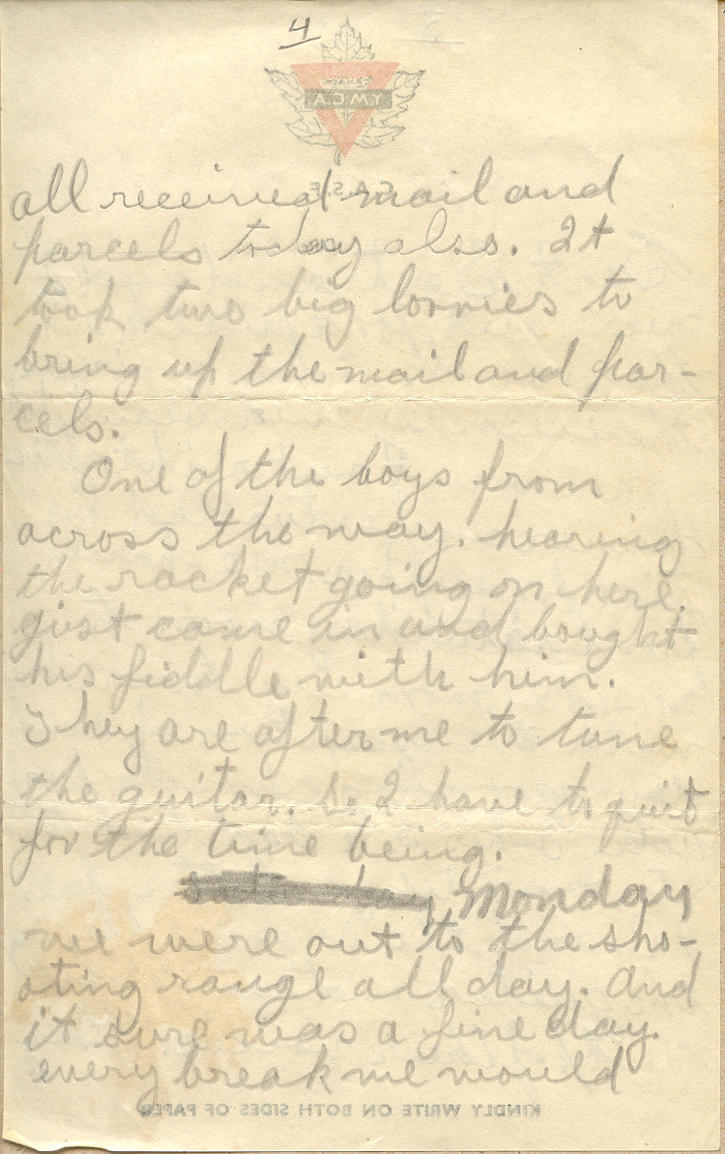 4
CANADIAN
Y.M.C.A.
C.A.S.F.
all received mail and
parcels today also. It
took two big lorries to
bring up the mail and par-
cels.
One of the boys from
across the way. hearing
the racket going on here.
gust came in and bought
his fiddle with him.
They are after me to tune
the guitar. So I have to quit
for the time being.
Saturday Monday
we were out to the sho-
oting range all day. And
it sure was a fine day.
every break we would
KINDLY WRITE ON BOTH SIDES OF PAPER